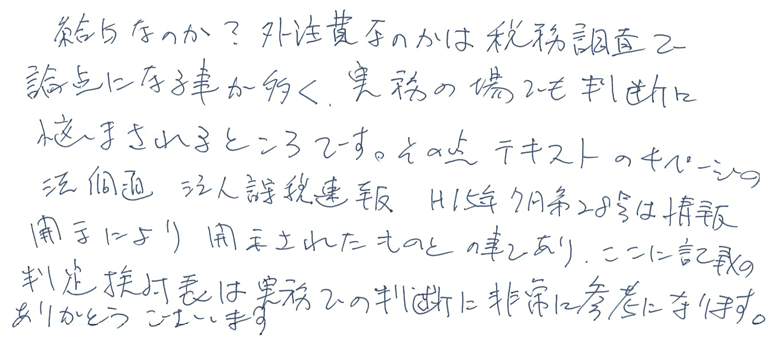 給与なのか？外注費なのかは税務調査で
論点になる事が多く、実務の場でも判断に
悩まされるところです。その点 テキストの4ページの
法個通 法人課税速報 H15年7月第28号は情報
開示により開示されたものとの事であり、ここに記載の
判定検討表は実務での判断に非常に参考になります。
ありがとうございます